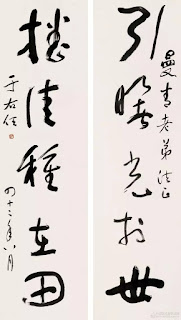 引曙光於世
曼青老弟法正
播佳種在田
于右任
四十二年八月